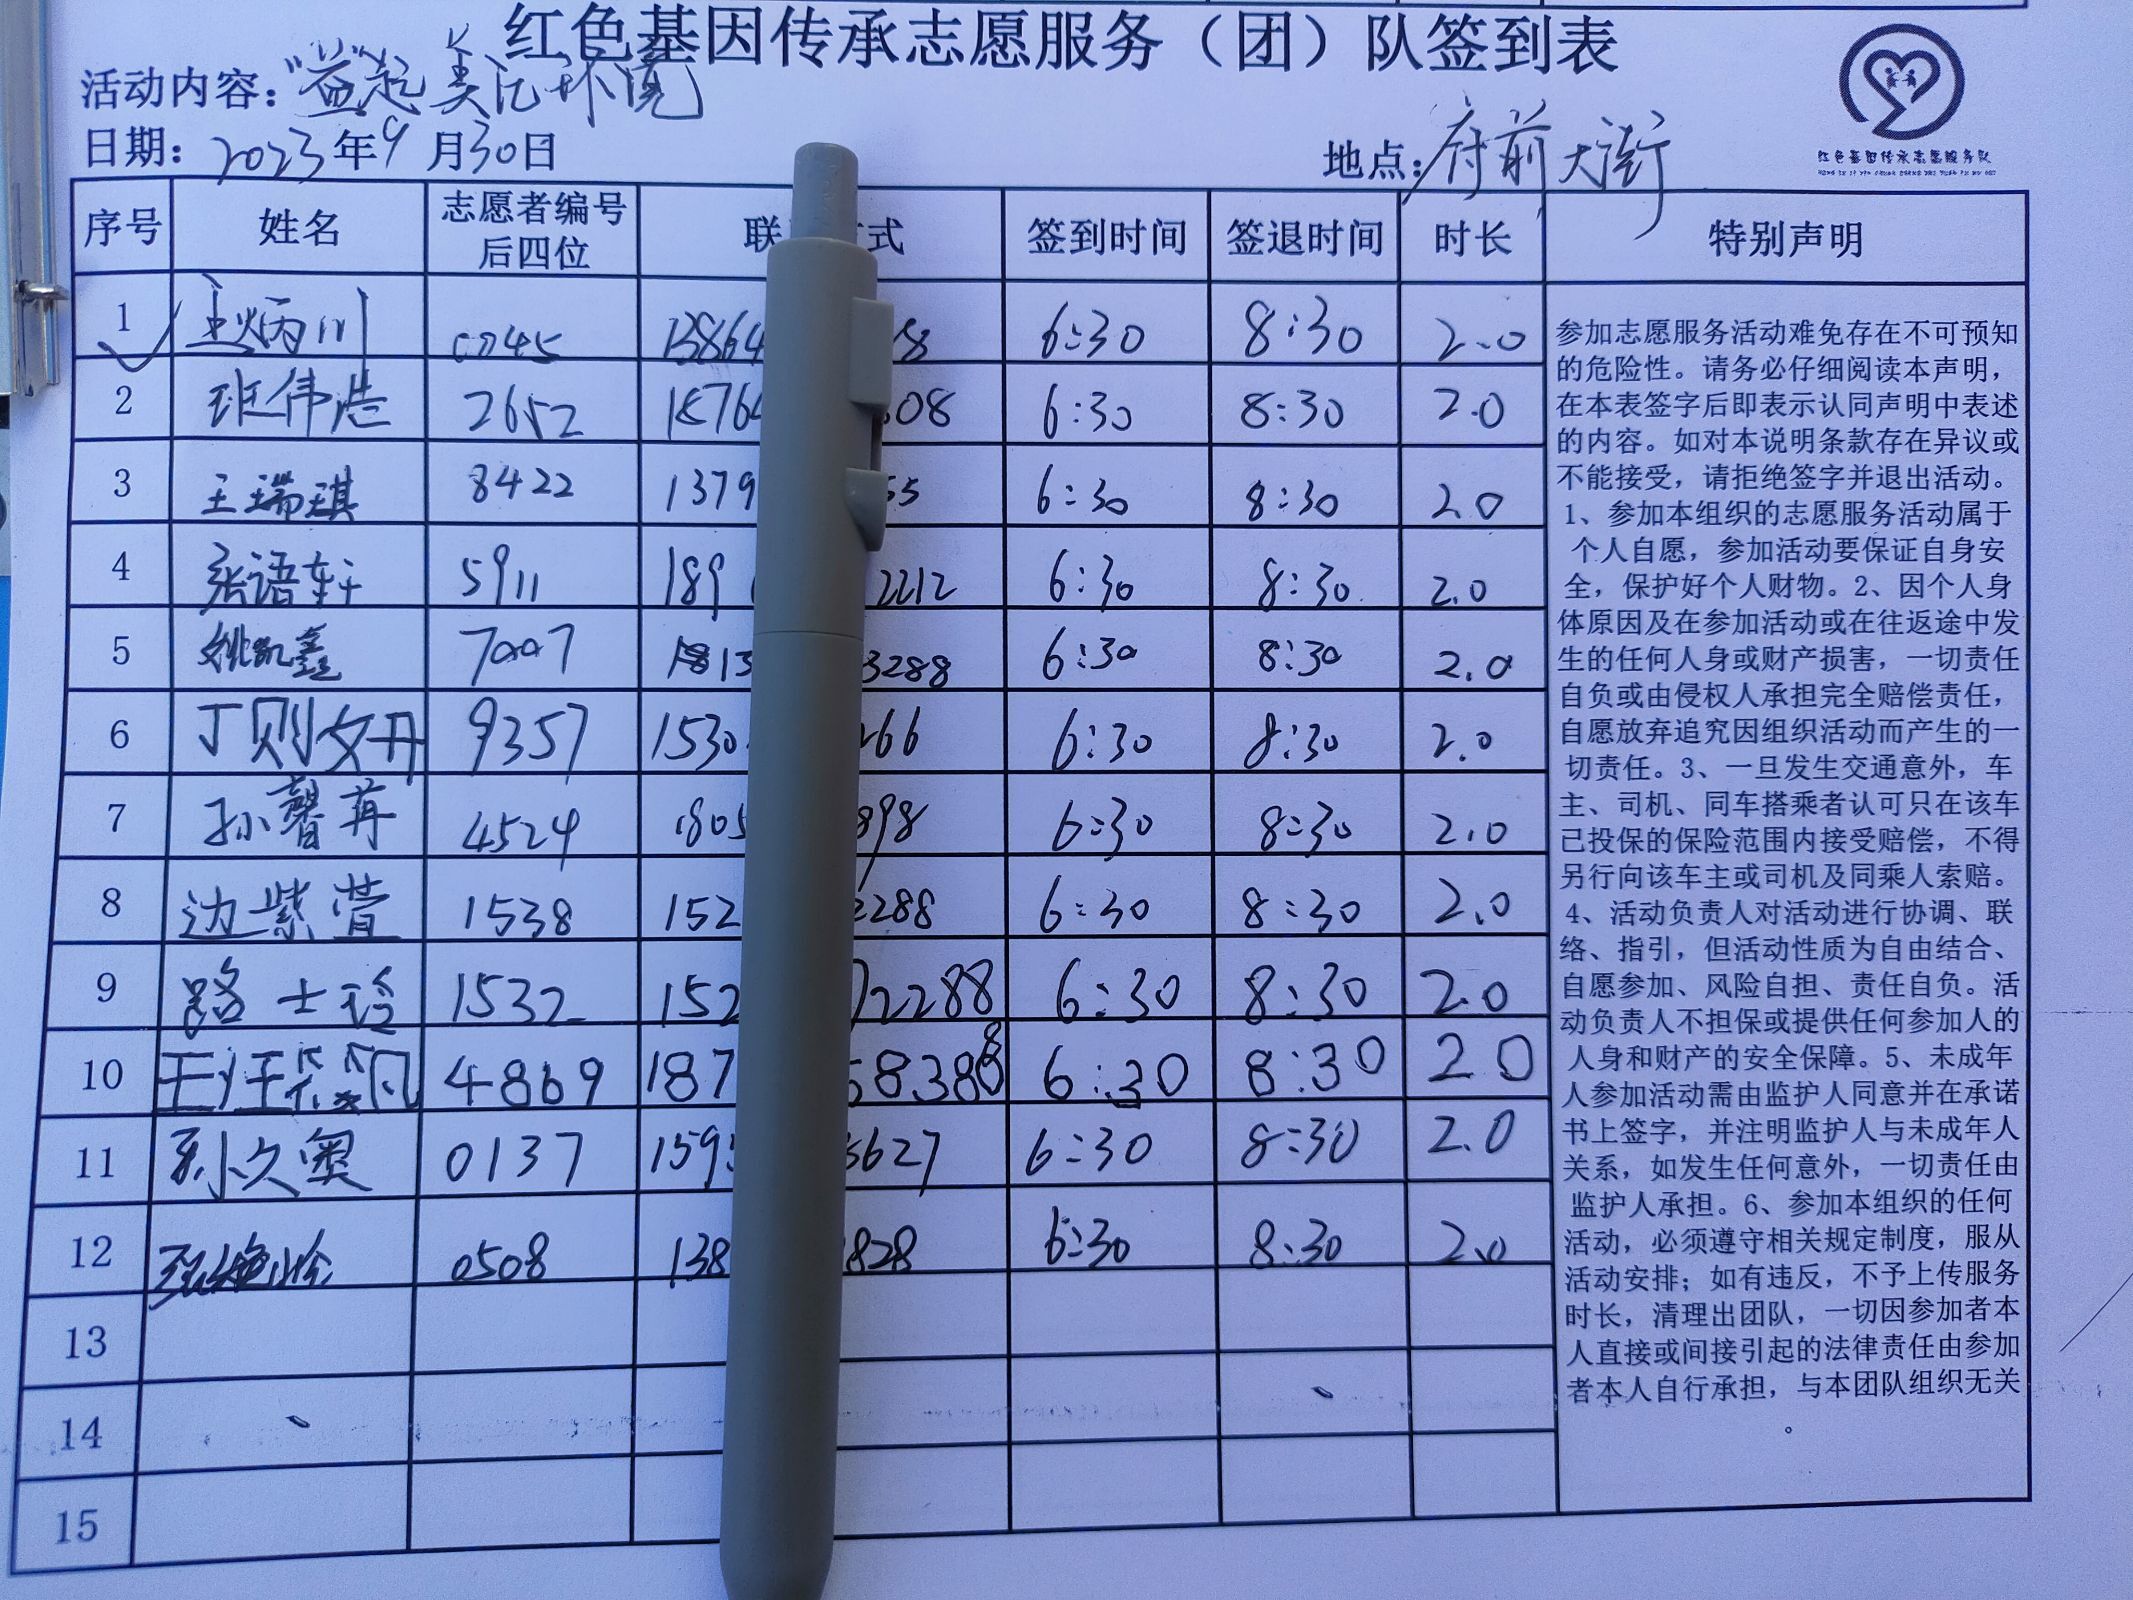 红色基因传承志愿服务（团）队签到表
活动内容："益"起 美化环境
日期：2023年9月30日
地点：府前大街
红色基因传承志愿服务队
序号 姓名 志愿者编号后四位 联 式 签到时间 签退时间 时长 特别声明
1 炳川 0045 13864 8 6:30 8:30 2.0
2 班伟浩 2652 18764 808 6:30 8:30 2.0
3 王瑞琪 8422 1379 55 6:30 8:30 2.0
4 张语轩 5911 189 2212 6:30 8:30 2.0
5 姚凯鑫 7007 1813 3288 6:30 8:30 2.0
6 丁则文丹 9357 1530 266 6:30 8:30 2.0
7 孙馨苒 4524 1805 898 6:30 8:30 2.0
8 边紫萱 1538 152 2288 6:30 8:30 2.0
9 路士玲 1532 152 72288 6:30 8:30 2.0
10 王汪棕凡 4869 187 58388 6:30 8:30 2.0
11 孙久奥 0137 159 3627 6:30 8:30 2.0
12 0508 138 828 6:30 8:30 2.0
13
14
15
参加志愿服务活动难免存在不可预知
的危险性。请务必仔细阅读本声明，
在本表签字后即表示认同声明中表述
的内容。如对本说明条款存在异议或
不能接受，请拒绝签字并退出活动。
1、参加本组织的志愿服务活动属于
个人自愿，参加活动要保证自身安
全，保护好个人财物。2、因个人身
体原因及在参加活动或在往返途中发
生的任何人身或财产损害，一切责任
自负或由侵权人承担完全赔偿责任，
自愿放弃追究因组织活动而产生的一
切责任。3、一旦发生交通意外，车
主、司机、同车搭乘者认可只在该车
已投保的保险范围内接受赔偿，不得
另行向该车主或司机及同乘人索赔。
4、活动负责人对活动进行协调、联
络、指引，但活动性质为自由结合、
自愿参加、风险自担、责任自负。活
动负责人不担保或提供任何参加人的
人身和财产的安全保障。5、未成年
人参加活动需由监护人同意并在承诺
书上签字，并注明监护人与未成年人
关系，如发生任何意外，一切责任由
监护人承担。6、参加本组织的任何
活动，必须遵守相关规定制度，服从
活动安排；如有违反，不予上传服务
时长，清理出团队，一切因参加者本
人直接或间接引起的法律责任由参加
者本人自行承担，与本团队组织无关
。